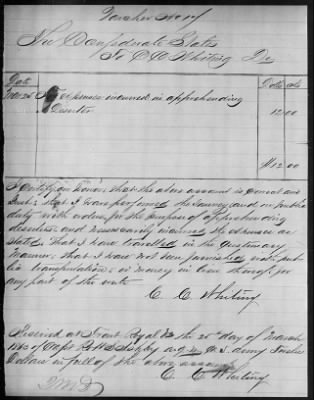 Voucher No 17
The Confederate States
To C C Whiting Dr
Date Dolls cts
Mch 25 For expenses incurred in apprehending
Deserter 12.00
$12.00
I certify on honor, that the above account is correct and
just; that I have performed the journey and on public
duty with orders for the purpose of apprehending
deserters and necessarily incurred the expenses as
stated, that I have travelled in the customary
manner, that I have not been furnished with pub
lic transportation, or money in lieu thereof, for
any part of the route
C. C. Whiting
Received at Front Royal Va the 25th day of March
1863 of Capt a.q.m. C. S. Army Twelve
Dollars in full of the above account
C. C. Whiting